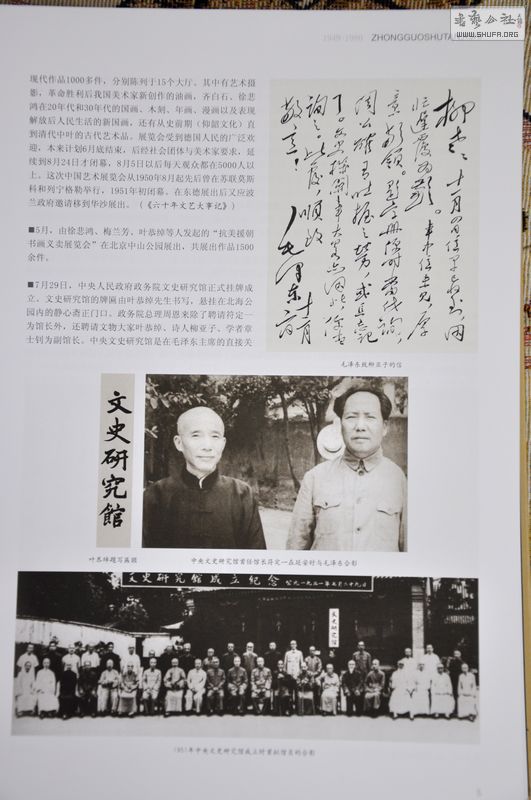 書藝公社
WWW.SHUFA.ORG
1949-1999 ZHONGGUOSHUFA
现代作品1000多件，分别陈列于15个大厅。其中有艺术摄
影，革命胜利后我国美术家新创作的油画，齐白石、徐悲
鸿在20年代和30年代的国画、木刻、年画、漫画以及表现
解放后人民生活的新国画，还有从史前期（仰韶文化）直
到清代中叶的古代艺术品。展览会受到德国人民的广泛欢
迎，本来计划6月底结束，后经社会团体与美术家要求，延
续到8月24日才闭幕，8月5日以后每天观众都在5000人以
上。这次中国艺术展览会从1950年8月起先后曾在苏联莫斯
科和列宁格勒举行，1951年初闭幕。在东德展出后又应波
兰政府邀请移到华沙展出。（《六十年文艺大事记》）
■5月，由徐悲鸿、梅兰芳、叶恭绰等人发起的“抗美援朝
书画义卖展览会”在北京中山公园展出，共展出作品1500
余件。
■7月29日，中央人民政府政务院文史研究馆正式挂牌成
立。文史研究馆的牌匾由叶恭绰先生书写，悬挂在北海公
园内的静心斋正门口。政务院总理周恩来除了聘请符定一
为馆长外，还聘请文物大家叶恭绰、诗人柳亚子、学者章
士钊为副馆长。中央文史研究馆是在毛泽东主席的直接关
毛泽东
毛泽东致柳亚子的信
文史研究馆
叶恭绰题写匾额
中央文史研究馆首任馆长符定一在延安时与毛泽东合影
文史研究馆成立纪念 公元一九五一年七月二十九日
文史研究馆
1951年中央文史研究馆成立时首批馆员的合影
5